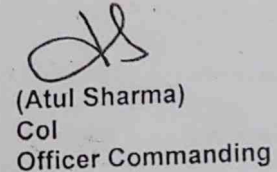 (Atul Sharma)
Col
Officer Commanding